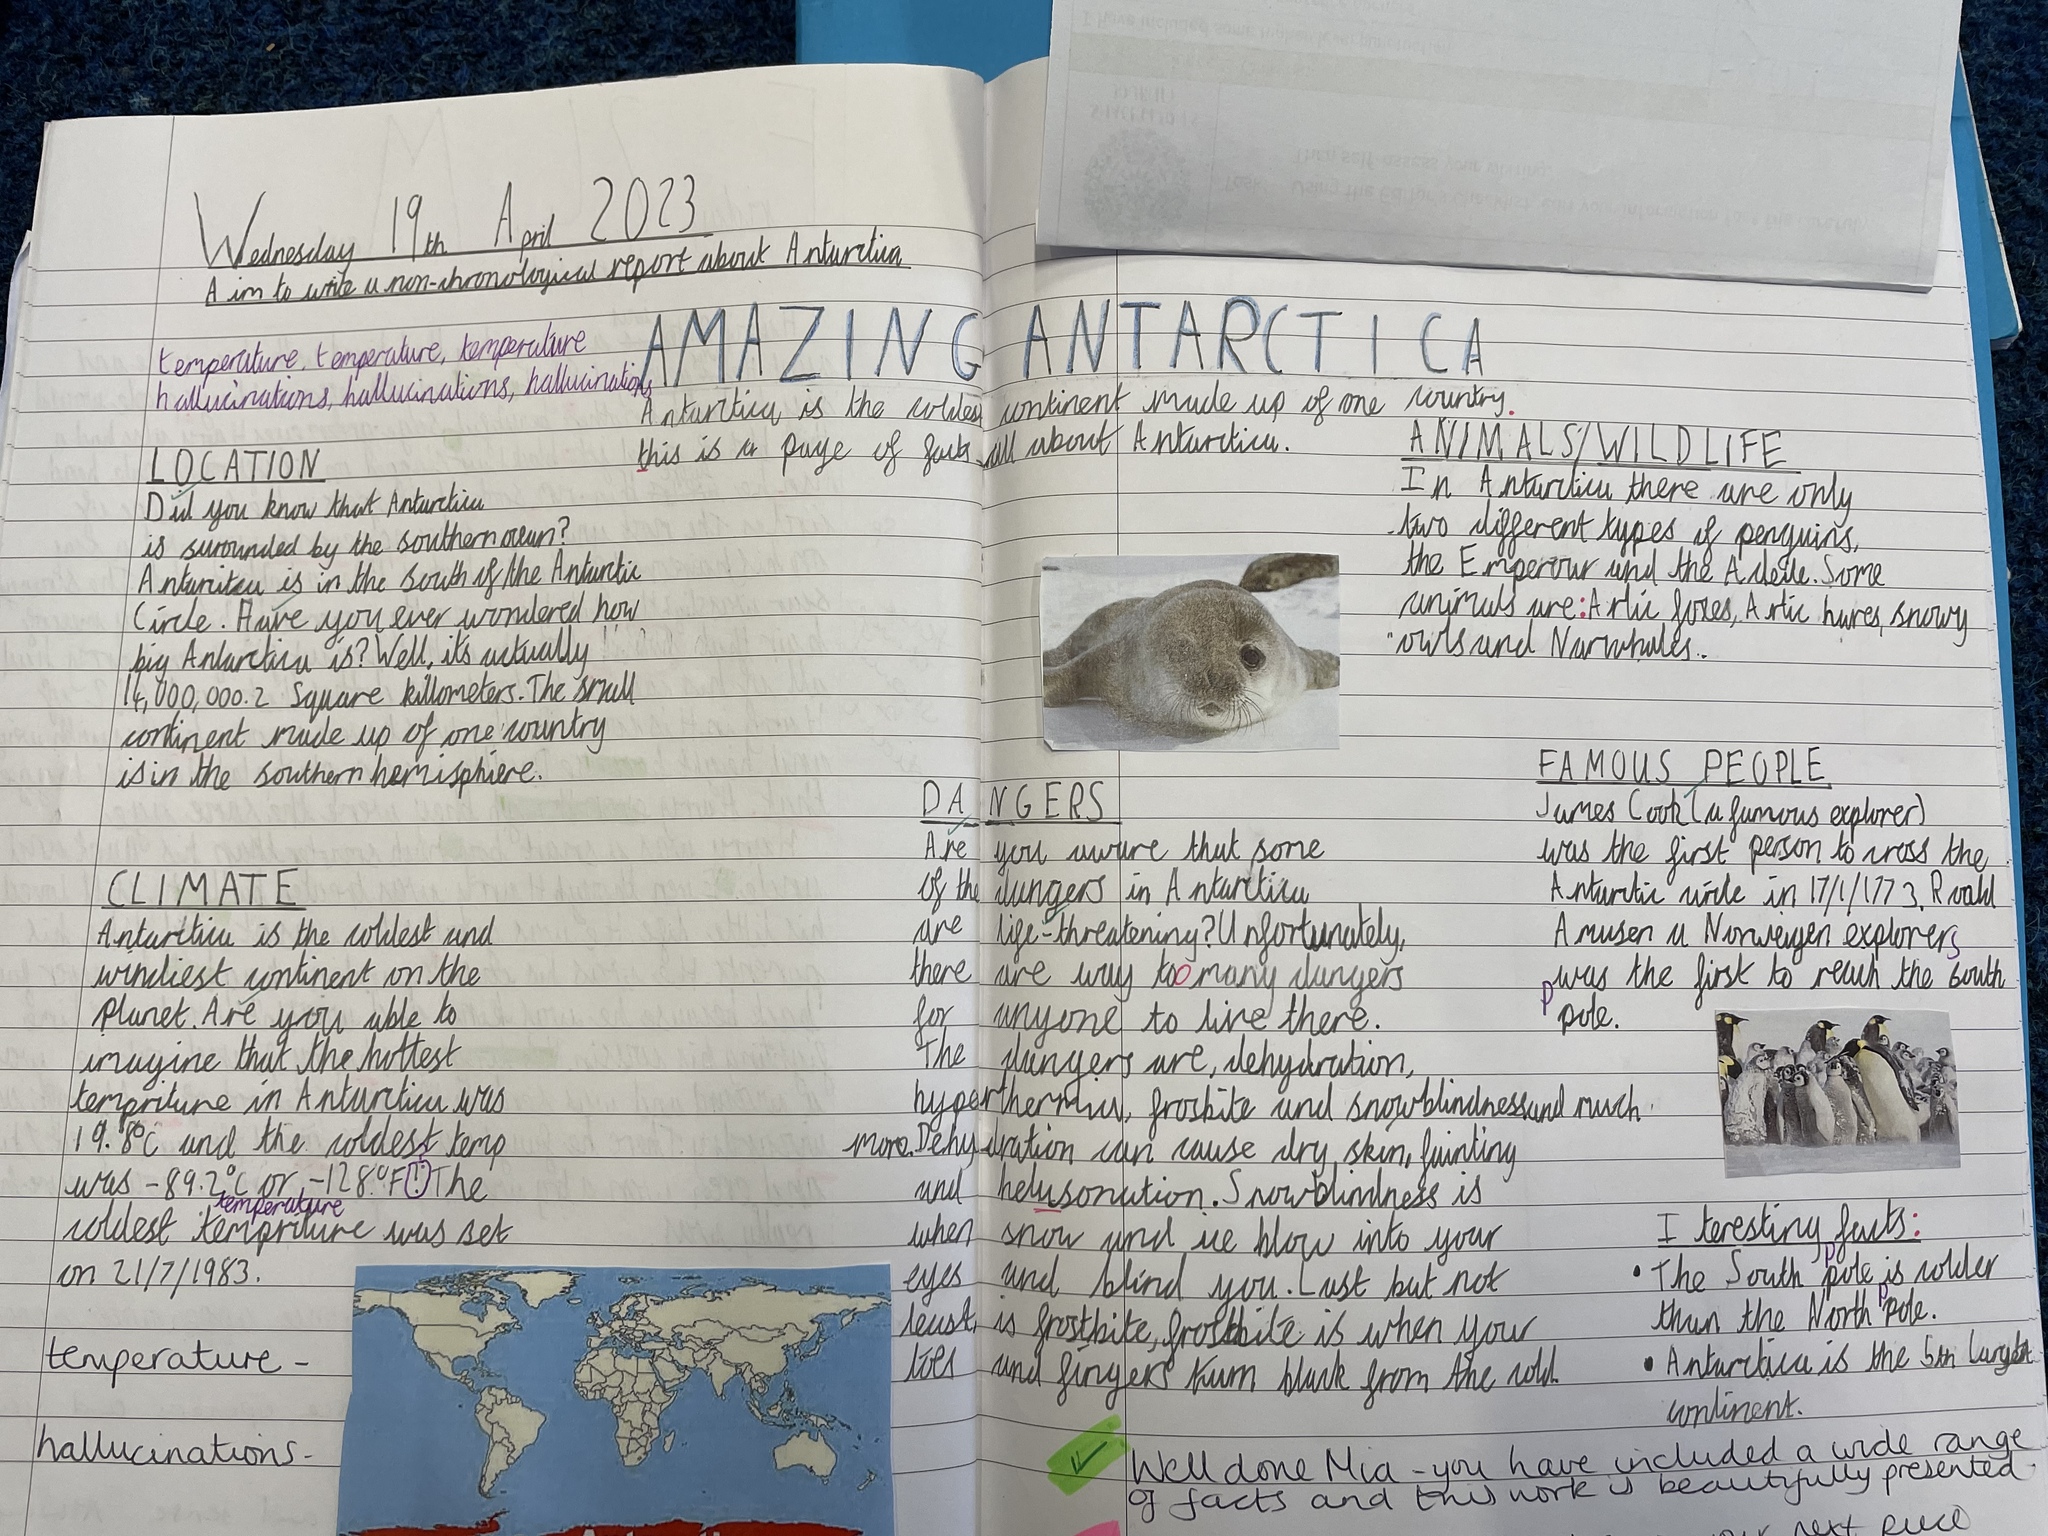 Wednesday 19th April 2023
Aim to write a non-chronological report about Antarctica
temperature, temperature, temperature
hallucinations, hallucinations, hallucinations
AMAZING ANTARCTICA
Antarctica is the coldest continent made up of one country.
this is a page of facts all about Antarctica.
LOCATION
Did you know that Antarctica
is surounded by the southern ocean?
Antarcitca is in the south of the Antarctic
Circle. Have you ever wondered how
big Antarctica is? Well, its actually
14,000,000.2 Square killometers. The small
continent made up of one country
is in the southern hemisphiere.
CLIMATE
Antarctica is the coldest and
windiest continent on the
planet. Are you able to
imagine that the hottest
tempriture in Antarctica was
19.8°C and the coldest temp
was -89.2°C or -128°F! The
temperature
coldest tempriture was set
on 21/7/1983.
temperature -
hallucinations -
DANGERS
Are you aware that some
of the dangers in Antarctica
are life-threatening? Unfortunately,
there are way too many dangers
for anyone to live there.
The dangers are, dehydration,
hyperthermia, frosbite and snowblindness and much
more. Dehydration can cause dry skin, fainting
and helusonation. Snowblindness is
when snow and ice blow into your
eyes and blind you. Last but not
least, is frostbite, frostbite is when your
toes and fingers turn black from the cold.
ANIMALS/WILDLIFE
In Antarctica there are only
two different types of penguins,
the Emperour and the Adelie. Some
animals are: Artic foxes, Artic hares, snowy
owls and Narwhales..
FAMOUS PEOPLE
James Cook (a famous explorer)
was the first person to cross the
Antarctic circle in 17/1/1773. Roald
Amusen a Norweigen explorers
was the first to reach the south
p pole.
Iteresting facts:
• The South pole is colder
than the North pole.
• Antarctica is the 5th largest
continent.
Well done Mia - you have included a wide range
of facts and this work is beautifully presented.
your next piece